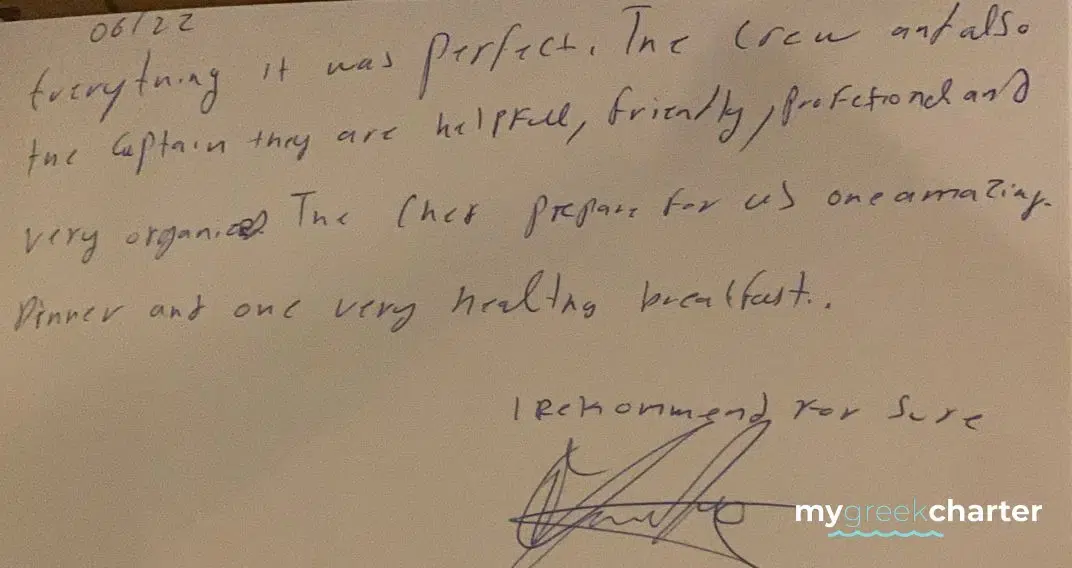 06/22
Everything it was perfect. The crew and also
the captain they are helpfull, friendly, profetional and
very organized The chef prepare for us one amazing.
Dinner and one very healthy breakfast..
I rekommend for sure
mygreekcharter